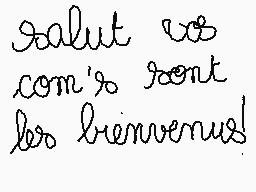 salut vos
com's sont
les bienvenus!